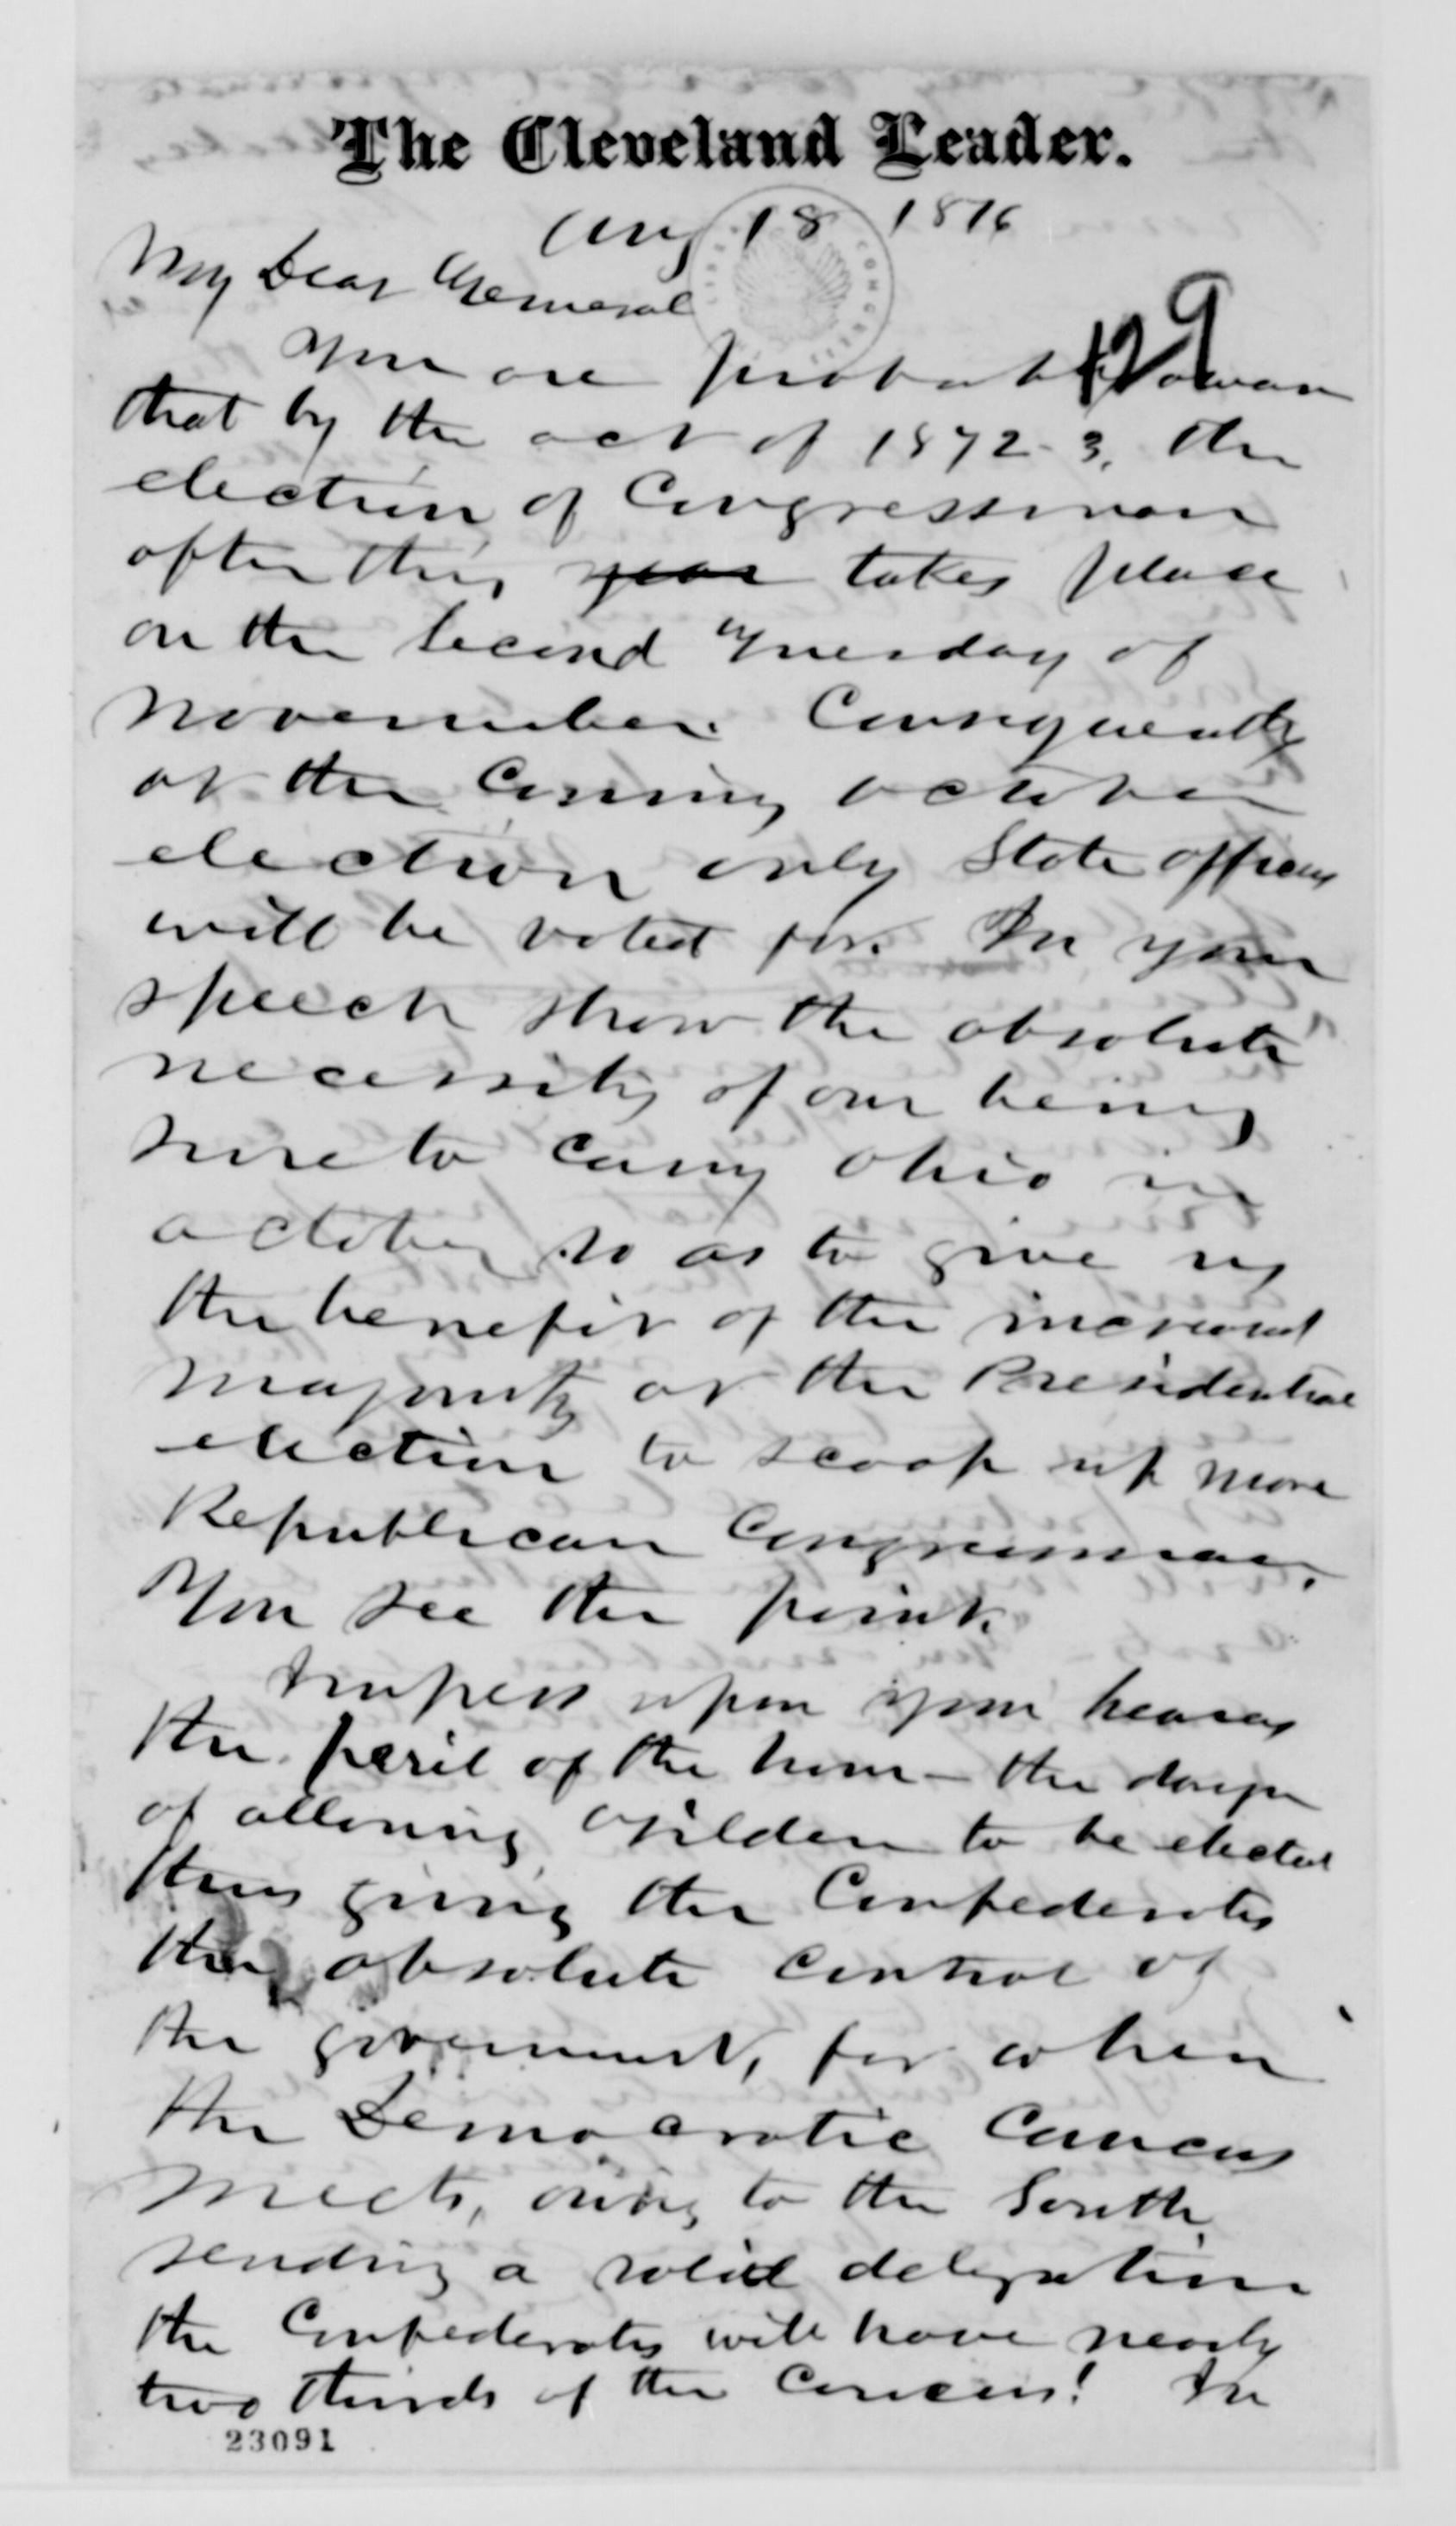 The Cleveland Leader.
Aug 18 1876
My Dear General
129
You are probably aware
that by the act of 1872-3, the
election of Congressmen
after this year takes place
on the second Tuesday of
November. Consequently
at the coming October
election only State officers
will be voted for. In your
speech show the absolute
necessity of our being
sure to carry Ohio in
October so as to give us
the benefit of the increased
majority at the Presidential
election to scoop up more
Republican Congressmen.
You see the point.
Impress upon your hearers
the peril of the hour – the danger
of allowing Tilden to be elected
thus giving the Confederates
the absolute control of
the government, for when
the Democratic Caucus
meets, owing to the South
sending a solid delegation
the Confederates will have nearly
two thirds of the Caucus! In
23091